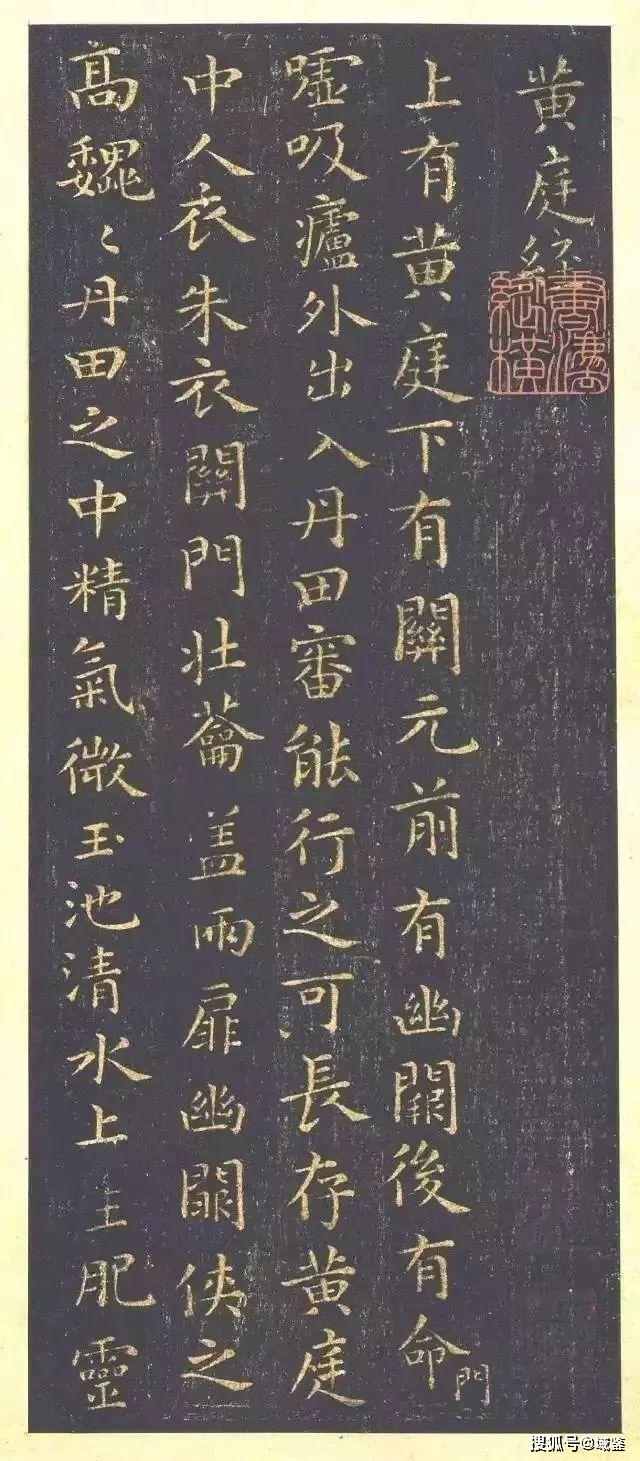 黄庭經
上有黄庭下有關元前有幽闕後有命門
嘘吸廬外出入丹田審能行之可長存黄庭
中人衣朱衣關門壯蘥盖兩扉幽闕俠之
高魏〻丹田之中精氣微玉池清水上生肥靈
搜狐号@域鉴